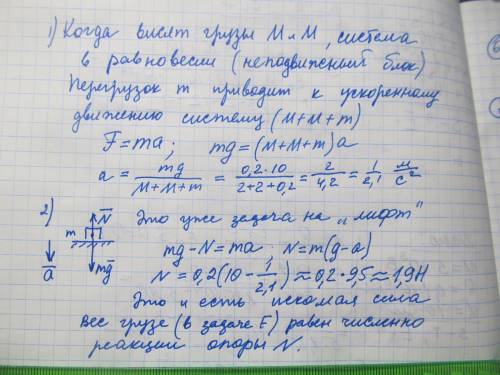 1) Когда висят грузы М и М, система
в равновесии (неподвижный блок)
Перегрузок m приводит к ускоренному
движению систему (М+М+m)
F=ma; mg=(М+М+m)a
a = mg/(М+М+m) = 0,2·10/(2+2+0,2) = 2/4,2 = 1/2,1 м/с²
2) N Это уже задача на „лифт"
m mg-N=ma N=m(g-a)
a mg N=0,2(10-1/2,1)≈0,2·9,5≈1,9Н
Это и есть искомая сила
Вес груза (в задаче F) равен численно
реакции опоры N.